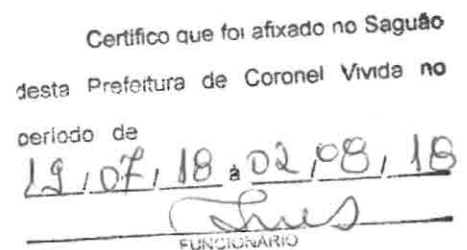 Certifico que foi afixado no Saguão
desta Prefeitura de Coronel Vivida no
período de
19/07/18 a 02/08/18
FUNCIONÁRIO